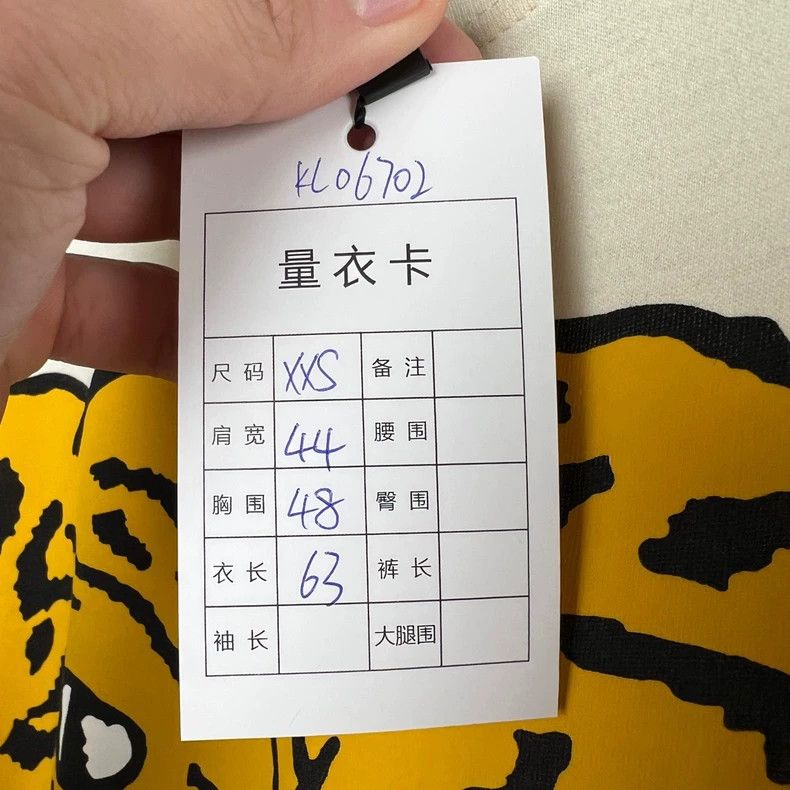 KL06702
量衣卡
尺码 XXS 备注
肩宽 44 腰围
胸围 48 臀围
衣长 63 裤长
袖长 大腿围